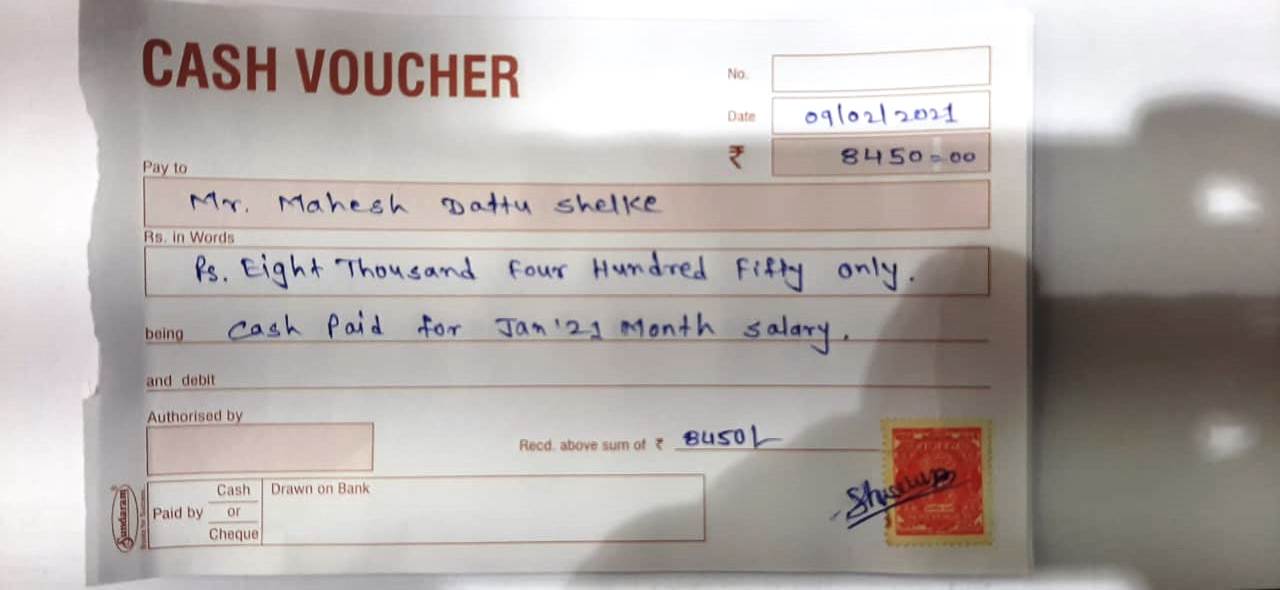 CASH VOUCHER
No.
Date 09/02/2021
₹ 8450=00
Pay to
Mr. Mahesh Dattu Shelke
Rs. in Words
Rs. Eight Thousand Four Hundred Fifty only.
being Cash Paid for Jan'21 Month salary.
and debit
Authorised by
Recd. above sum of ₹ 8450/-
Cash Drawn on Bank
Paid by or
Cheque
Sundaram